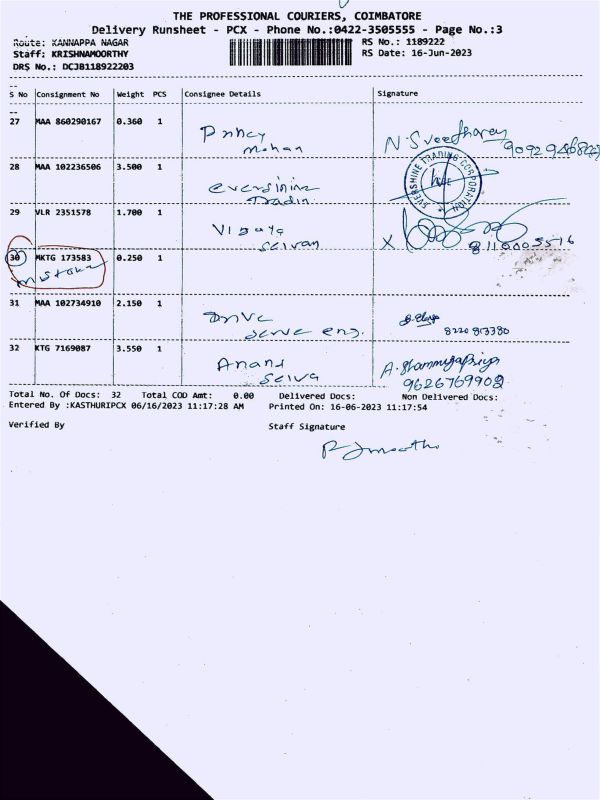 THE PROFESSIONAL COURIERS, COIMBATORE
Delivery Runsheet - PCX - Phone No.:0422-3505555 - Page No.:3
Route: KANNAPPA NAGAR RS No.: 1189222
Staff: KRISHNAMOORTHY RS Date: 16-Jun-2023
DRS No.: DCJB118922203
S No Consignment No Weight PCS Consignee Details Signature
27 MAA 860290167 0.360 1
mohan
28 MAA 102236506 3.500 1
EVERSHINE TRADING CORPORATION
29 VLR 2351578 1.700 1
Selvan X
30 MKTG 173583 0.250 1
31 MAA 102734910 2.150 1
serve eng. 8220 813380
32 KTG 7169087 3.550 1
Anand A. Shanmugapriya
Selva
Total No. Of Docs: 32 Total COD Amt: 0.00 Delivered Docs: Non Delivered Docs:
Entered By :KASTHURIPCX 06/16/2023 11:17:28 AM Printed On: 16-06-2023 11:17:54
Verified By Staff Signature